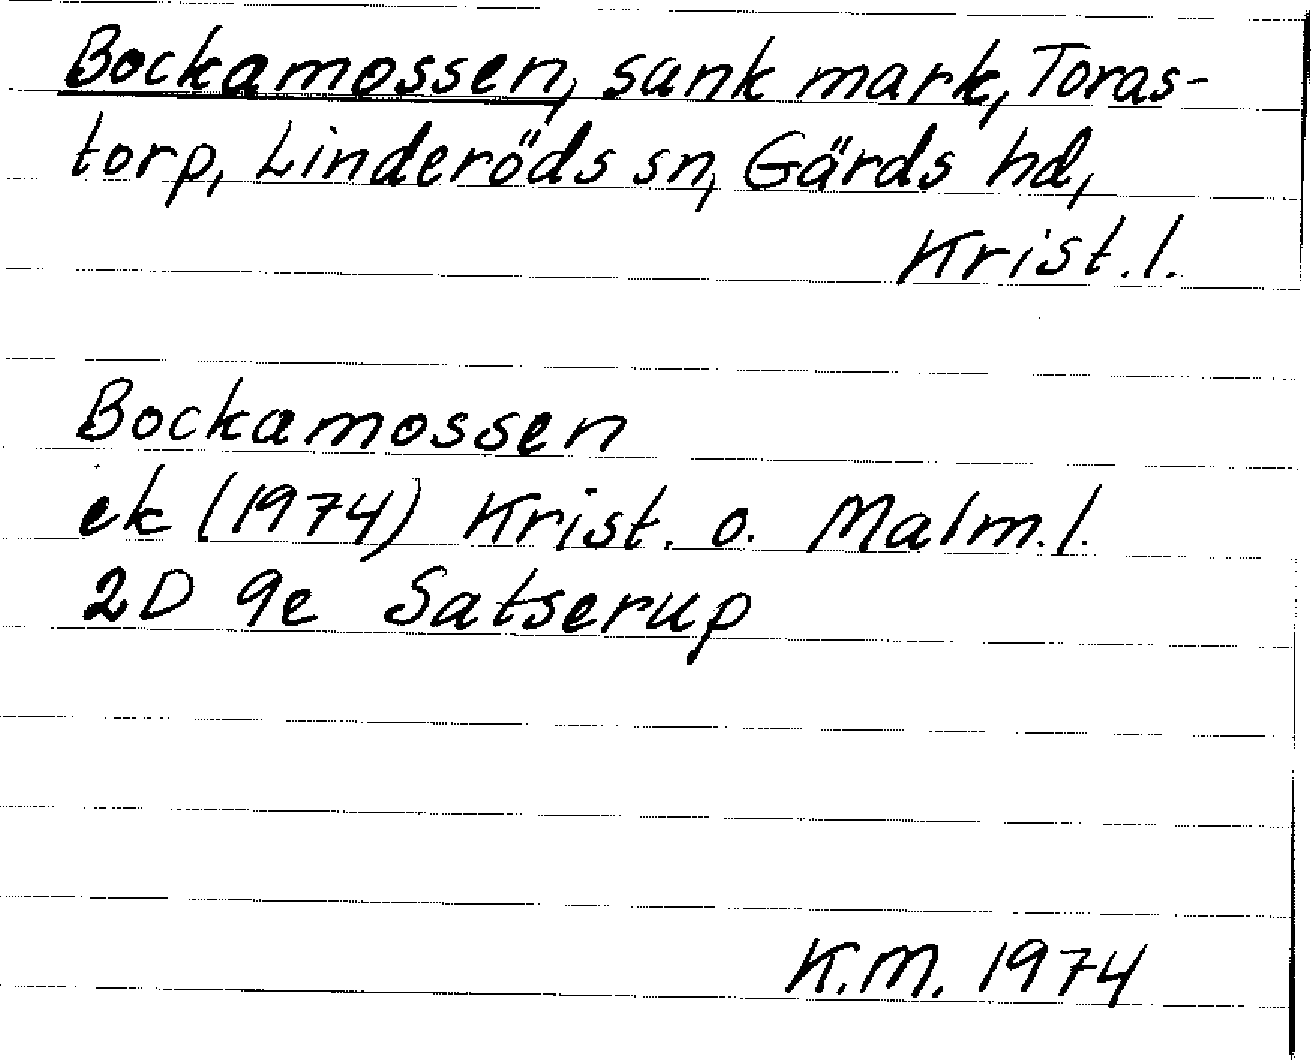 Bockamossen, sank mark, Toras-
torp, Linderöds sn, Gärds hd,
Krist. l.
Bockamossen
ek (1974) Krist. o. Malm. l.
2D 9e Satserup
K.M. 1974